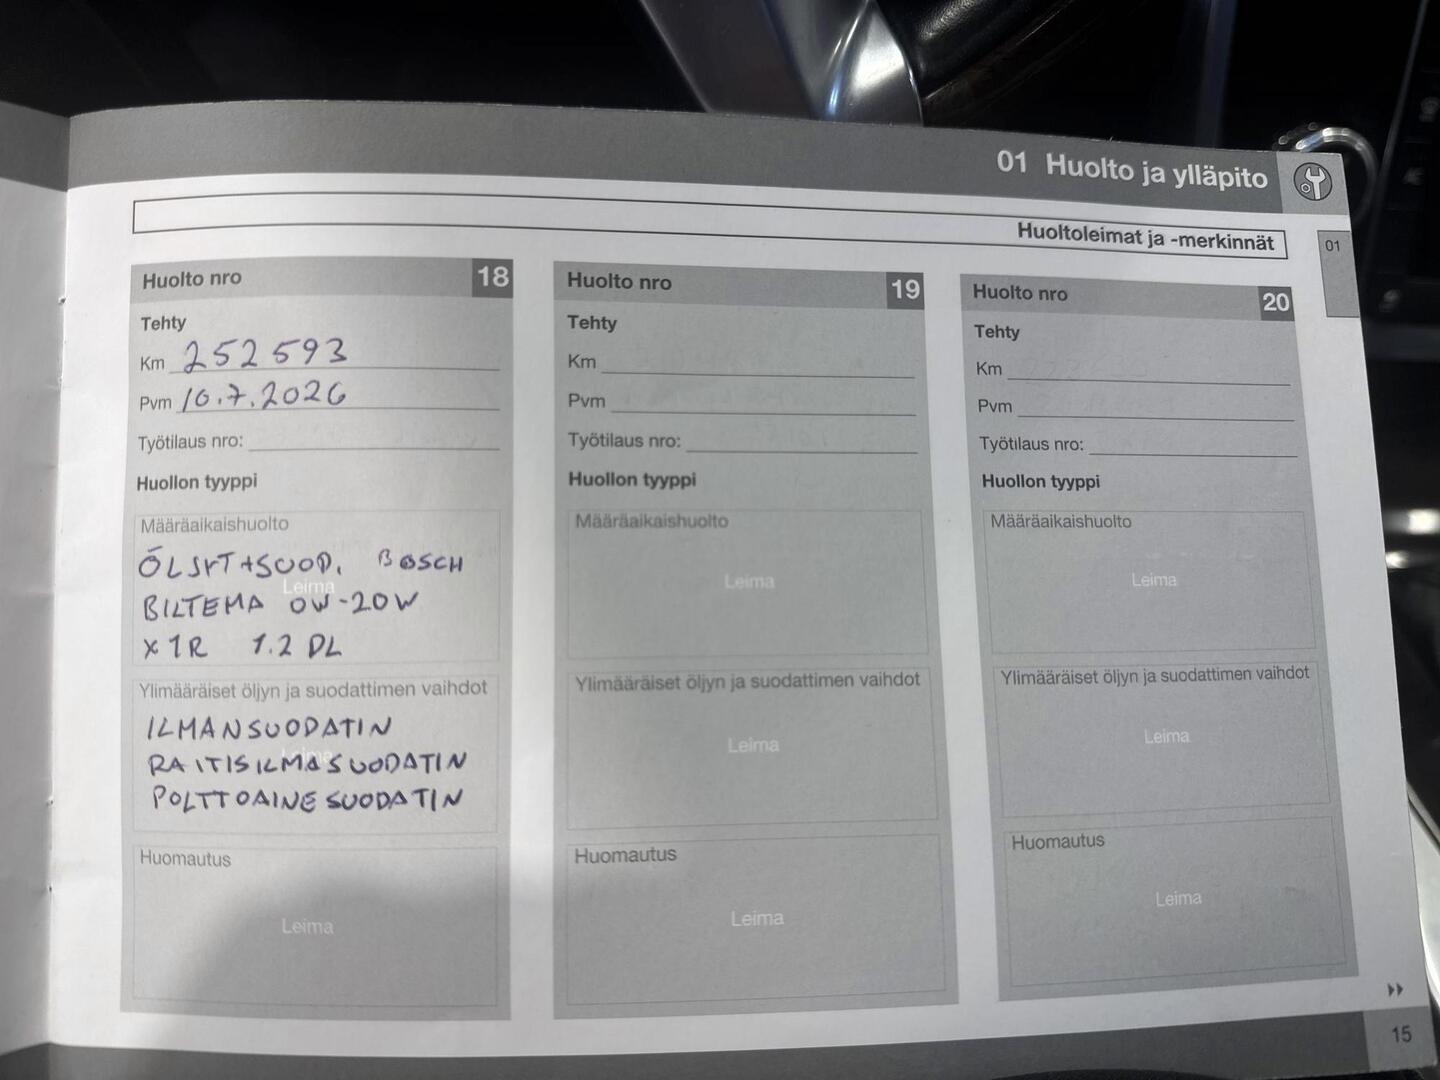 01 Huolto ja ylläpito
Huoltoleimat ja -merkinnät
01
Huolto nro 18
Tehty
Km 252593
Pvm 10.7.2026
Työtilaus nro:
Huollon tyyppi
Määräaikaishuolto
ÖLJYT+SUOD. BOSCH
Leima
BILTEMA 0W-20W
X1R 1.2 DL
Ylimääräiset öljyn ja suodattimen vaihdot
ILMANSUODATIN
Leima
RAITISILMASUODATIN
POLTTOAINESUODATIN
Huomautus
Leima
Huolto nro 19
Tehty
Km
Pvm
Työtilaus nro:
Huollon tyyppi
Määräaikaishuolto
Leima
Ylimääräiset öljyn ja suodattimen vaihdot
Leima
Huomautus
Leima
Huolto nro 20
Tehty
Km
Pvm
Työtilaus nro:
Huollon tyyppi
Määräaikaishuolto
Leima
Ylimääräiset öljyn ja suodattimen vaihdot
Leima
Huomautus
Leima
15